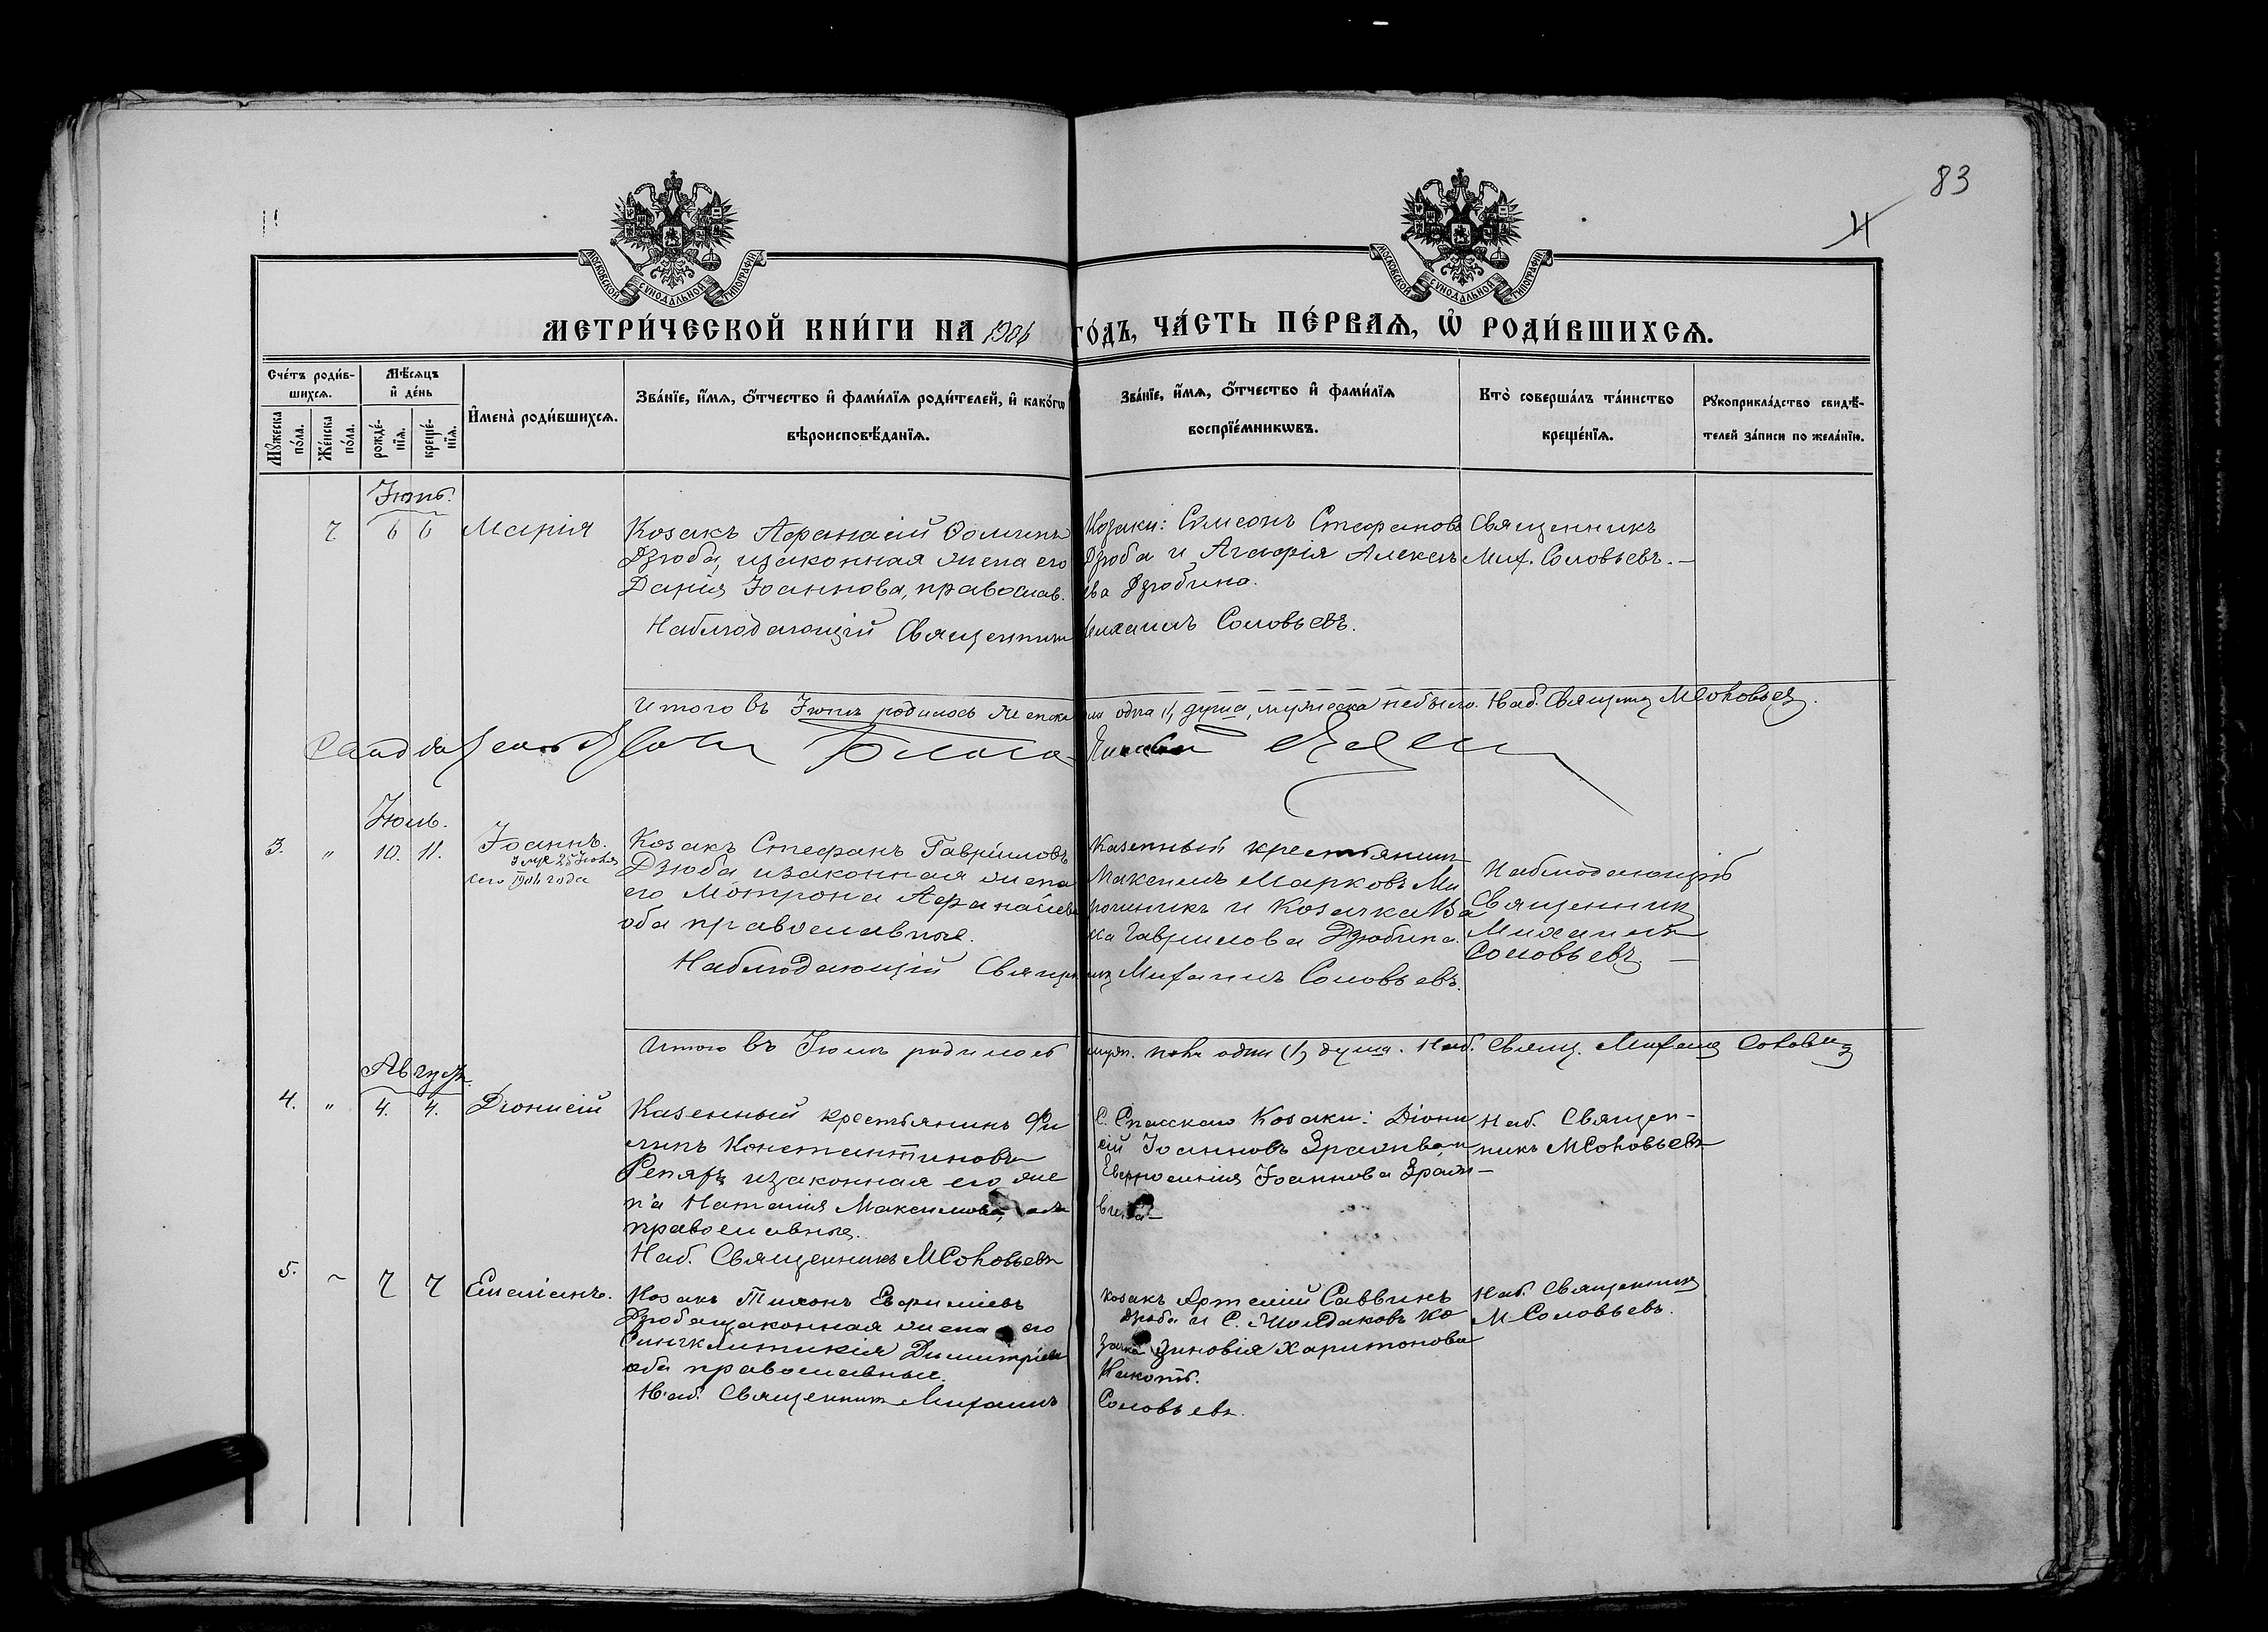 83
4
МОСКОВСКОЙ СѴНОДАЛЬНОЙ ТИПОГРАФІИ
МОСКОВСКОЙ СѴНОДАЛЬНОЙ ТИПОГРАФІИ
МЕТРИ́ЧЕСКОЙ КНИ́ГИ НА 1906 ГО́ДЪ, ЧА́СТЬ ПЕ́РВАѦ, Ѡ҆ РОДИ́ВШИХСѦ.
Сче́тъ роди́в-
шихсѧ.
Мѣ́сѧцъ
и҆ де́нь
Мꙋ́жеска по́ла.
Же́нска по́ла.
рожде́-
нїѧ.
креще́-
нїѧ.
И҆мена̀ роди́вшихсѧ.
Зва́нїе, и҆́мѧ, ѻ҆́тчество и҆ фами́лїѧ роди́телей, и҆ како́гѡ
вѣроисповѣ́данїѧ.
Зва́нїе, и҆́мѧ, ѻ҆́тчество и҆ фами́лїѧ
воспрїе́мникѡвъ.
Кто̀ соверша́лъ та́инство
креще́нїѧ.
Рꙋкоприкла́дство свидѣ́-
телей за́писи по жела́нїю.
Іюнь.
7 6 6 Марія
Козакъ Афанасій Ѳоминъ
Дзюба, и законная жена его
Дарія Іоаннова, православ.
Наблюдающій Священникъ Михаилъ Соловьевъ.
Козаки: Симеонъ Стефановъ
Дзюба и Агафія Алексѣ-
ева Дзюбина.
Священникъ
Мих. Соловьевъ.
Итого въ Іюнѣ родилось женска пола одна 1, душа, мужеска небыло. Наб. Священ. МСоловьев.
Іюль.
3. " 10. 11. Іоаннъ.
сего 1906 года
Козакъ Стефанъ Гавріиловъ
Дзюба и законная жена
его Мотрона Афанасіева
оба православные.
Наблюдающій Священникъ Михаилъ Соловьевъ.
Казенный крестьянинъ
Максимъ Марковъ Ми
рошникъ и Козачка
Гаврилова Дзюбина.
Наблюдающій
Священникъ
Михаилъ
Соловьевъ.
Итого въ Іюлѣ родилось муж. пола одна (1) душа. Наб. Свящ. Михаил Соловьев
Августъ.
4. " 4. 4. Діонисій
Казенный крестьянинъ Фи
липъ Константиновъ
Репяхъ и законная его же
на Наталія Максимова, оба
православные.
Наб. Священникъ МСоловьевъ
С. Спасскаго Козаки: Діони
сій Іоанновъ и
Евфросинія Іоаннова
Наб. Священ-
никъ МСоловьевъ
5. " 7 7 Емеліанъ.
Козакъ Тихонъ Евфиміевъ
Дзюба и законная жена его
Синклитикія Димитріева
оба православные.
Наб. Священникъ Михаилъ
Соловьевъ.
Козакъ Артемій Саввинъ
Дзюба и С. Шолдаковъ Ко
зачка Зиновія Харитонова
Наб. Священникъ
М Соловьевъ.